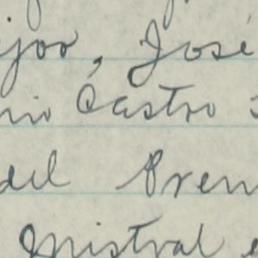 joo, José
nio Castro
del Prem
Mistral